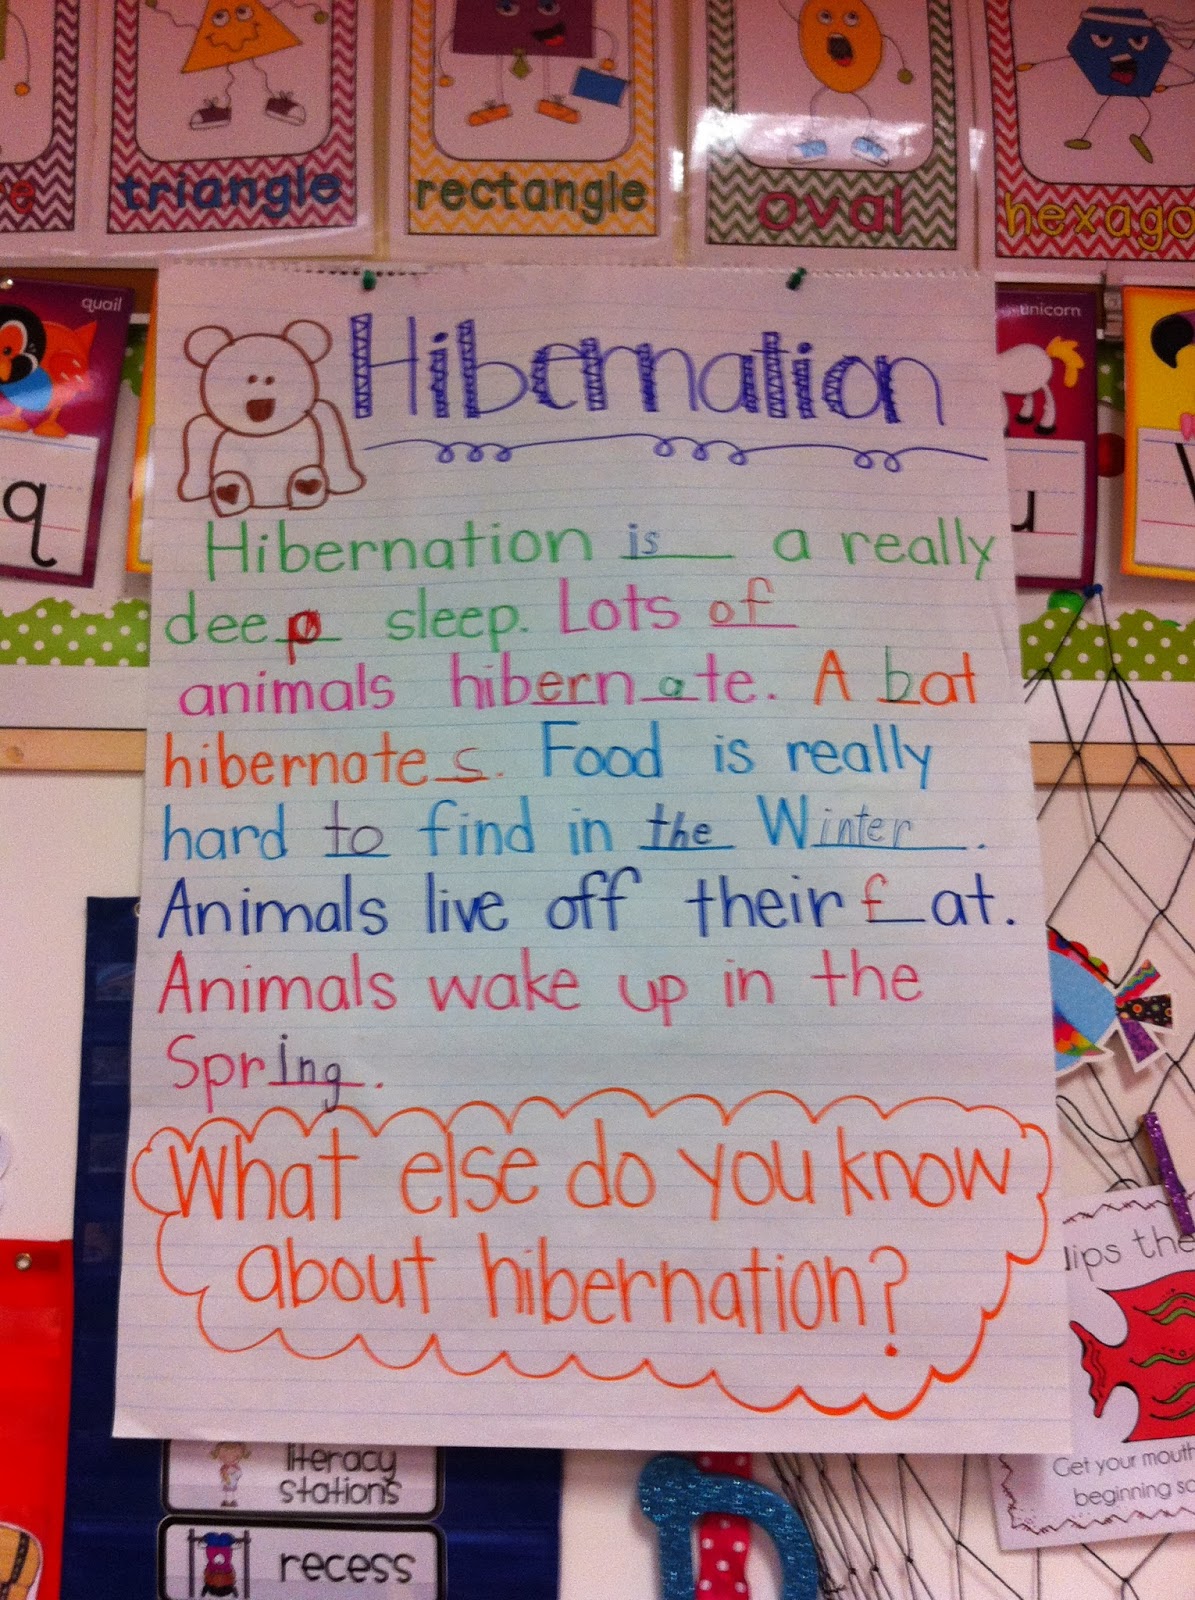 triangle
rectangle
oval
hexago
quail
unicorn
q
u
Hibernation
Hibernation is a really
deep sleep. Lots of
animals hibernate. A bat
hibernates. Food is really
hard to find in the Winter.
Animals live off their fat.
Animals wake up in the
Spring.
What else do you know
about hibernation?
lips the
Get your mouth
beginning so
literacy
stations
recess